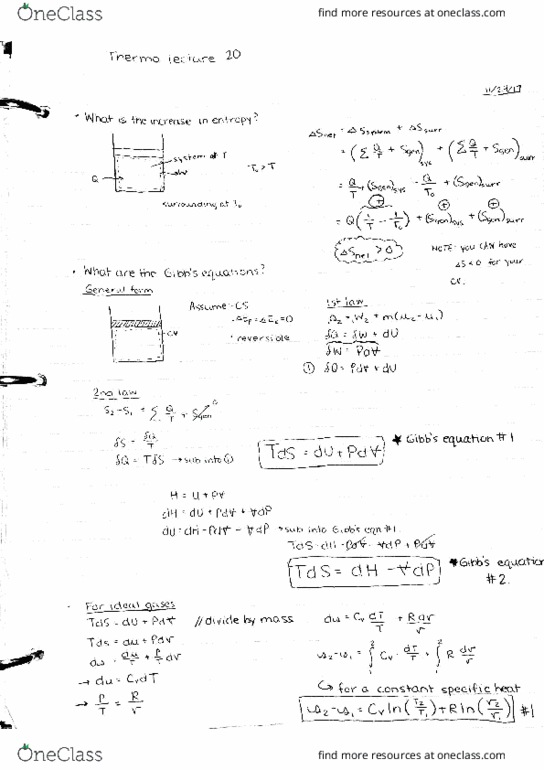 OneClass
find more resources at oneclass.com
Thermo lecture 20
11/29/17
• What is the increase in entropy?
system at T
Q
T₀ > T
surrounding at T₀
ΔSnet = ΔSsystem + ΔSsurr
= (Σ Q/T + Sgen)sys + (Σ Q/T + Sgen)surr
= Q/T + (Sgen)sys - Q/T₀ + (Sgen)surr
= Q(1/T - 1/T₀) + (Sgen)sys + (Sgen)surr
ΔSnet > 0
NOTE: you CAN have
ΔS < 0 for your
CV.
• What are the Gibb's equations?
General form
CV
Assume - CS
• reversible
1st law
δQ = δW + dU
δW = Pd∀
① δQ = Pd∀ + dU
2nd law
S₂-S₁ = Σ Q/T + Sgen
δS = δQ/T
δQ = TδS → sub into ①
TdS = dU + Pd∀
★ Gibb's equation #1
H = U + P∀
dH = dU + Pd∀ + ∀dP
dU = dH - Pd∀ - ∀dP → sub into Gibb's eqn #1
TdS = dH - Pd∀ - ∀dP + Pd∀
TdS = dH - ∀dP
★ Gibb's equation
#2
For ideal gases
TdS = dU + Pd∀ // divide by mass
Tds = du + Pdv
ds = du/T + P/T dv
→ du = CvdT
→ P/T = R/v
s₂-s₁ = ∫₁² Cv dT/T + ∫₁² R dv/v
↳ for a constant specific heat
s₂-s₁ = Cv ln(T₂/T₁) + R ln(v₂/v₁) #1
OneClass
find more resources at oneclass.com